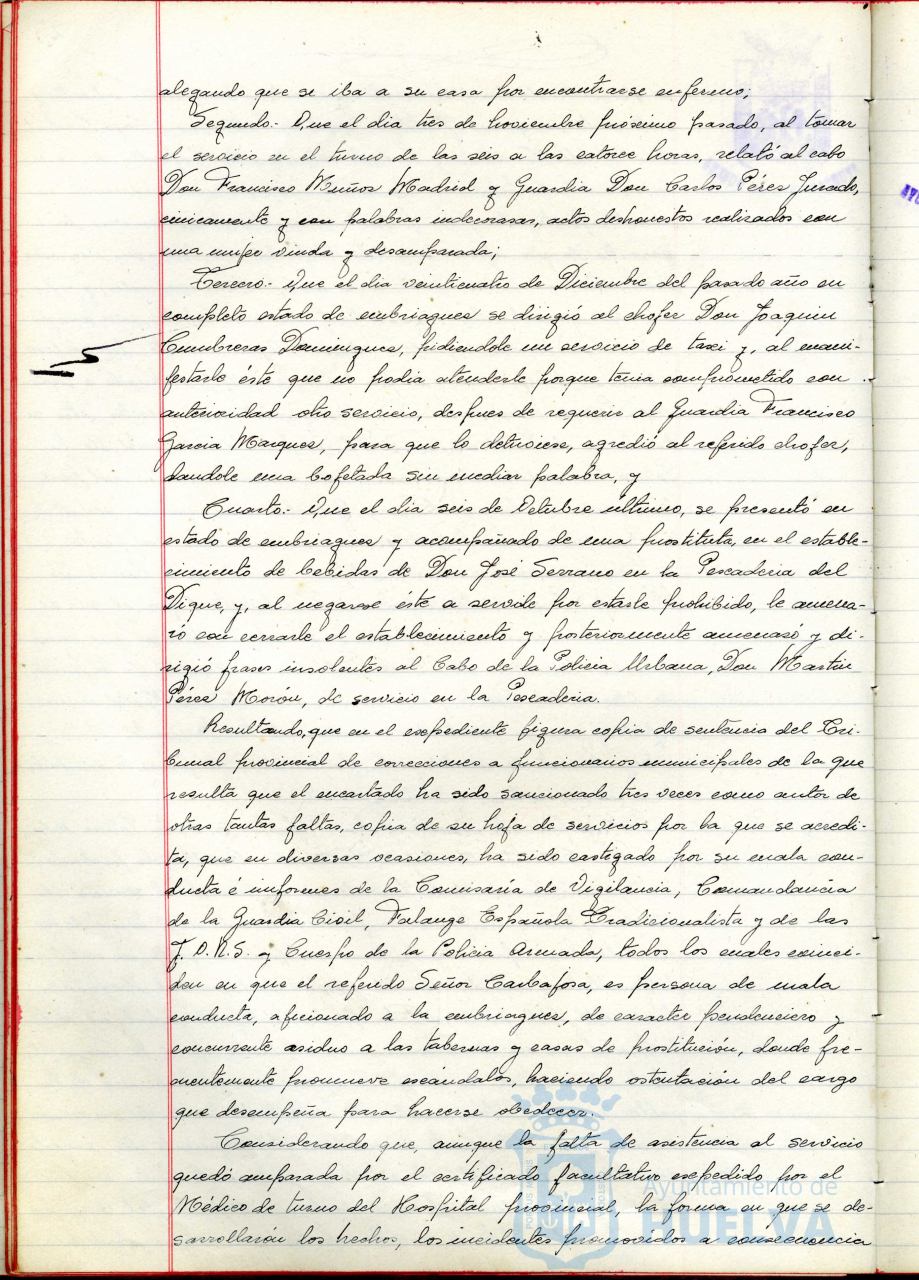 alegando que se iba a su casa por encontrarse enfermo;
Segundo.- Que el dia tres de Noviembre próximo pasado, al tomar
el servicio en el turno de las seis a las catorce horas, relató al cabo
Don Francisco Muñoz Madrid y Guardia Don Carlos Pérez Jurado,
cinicamente y con palabras indecorosas, actos deshonestos realizados con
una mujer viuda y desamparada;
Tercero.- Que el dia veinticuatro de Diciembre del pasado año en
completo estado de embriaguez se dirigió al chofer Don Joaquin
Cumbreras Dominguez, pidiendole un servicio de taxi y, al mani-
festarle éste que no podia atenderle porque tenia comprometido con
anterioridad otro servicio, despues de requerir al Guardia Francisco
Garcia Marquez, para que lo detuviese, agredió al referido chofer,
dandole una bofetada sin mediar palabra, y
Cuarto.- Que el dia seis de Octubre último, se presentó en
estado de embriaguez y acompañado de una prostituta, en el estable-
cimiento de bebidas de Don José Serrano en la Pescaderia del
Dique, y, al negarse éste a servirle por estarle prohibido, le amena-
zó con cerrarle el establecimiento y posteriormente amenazó y di-
rigió frases insolentes al Cabo de la Policia Urbana, Don Martin
Pérez Morón, de servicio en la Pescaderia.
Resultando, que en el expediente figura copia de sentencia del Tri-
bunal provincial de correcciones a funcionarios municipales de la que
resulta que el encartado ha sido sancionado tres veces como autor de
otras tantas faltas, copia de su hoja de servicios por la que se acredi-
ta, que en diversas ocasiones, ha sido castigado por su mala con-
ducta é informes de la Comisaría de Vigilancia, Comandancia
de la Guardia Civil, Falange Española Tradicionalista y de las
J.O.N.S. y Cuerpo de la Policia Armada, todos los cuales coinci-
den en que el referido Señor Carbajosa, es persona de mala
conducta, aficionado a la embriaguez, de caracter pendenciero y
concurrente asiduo a las tabernas y casas de prostitución, donde fre-
cuentemente promueve escándalos, haciendo ostentación del cargo
que desempeña para hacerse obedecer.
Considerando que, aunque la falta de asistencia al servicio
quedó amparada por el certificado facultativo expedido por el
Médico de turno del Hospital provincial, la forma en que se de-
sarrollarón los hechos, los incidentes promovidos a consecuencia
Ayuntamiento de
HUELVA